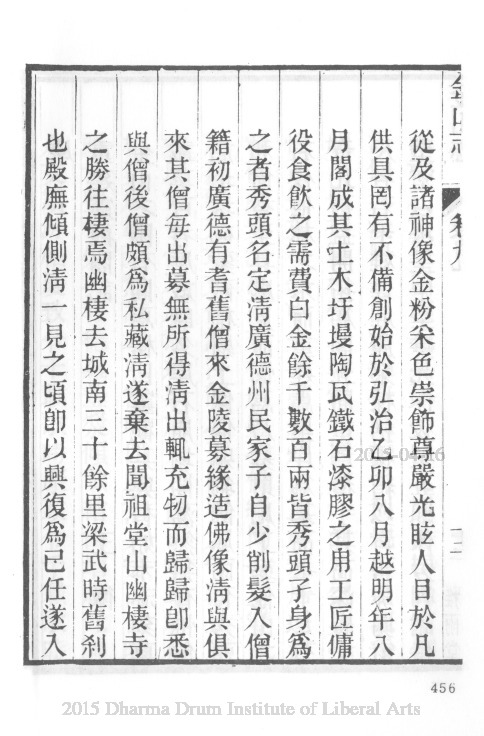 金山志
卷九
從及諸神像金粉采色崇飾尊嚴光眩人目於凡
供具罔有不備創始於弘治乙卯八月越明年八
月閣成其土木圬墁陶瓦鐵石漆膠之用工匠傭
役食飲之需費白金餘千數百兩皆秀頭子身為
之者秀頭名定淸廣德州民家子自少削髮入僧
籍初廣德有耆舊僧來金陵募緣造佛像淸與俱
來其僧每出募無所得淸出輒充牣而歸歸卽悉
與僧後僧頗爲私藏淸遂棄去聞祖堂山幽棲寺
之勝往棲焉幽棲去城南三十餘里梁武時舊刹
也殿廡傾側淸一見之頃卽以興復爲已任遂入
十二
2015-04-16
456
2015 Dharma Drum Institute of Liberal Arts